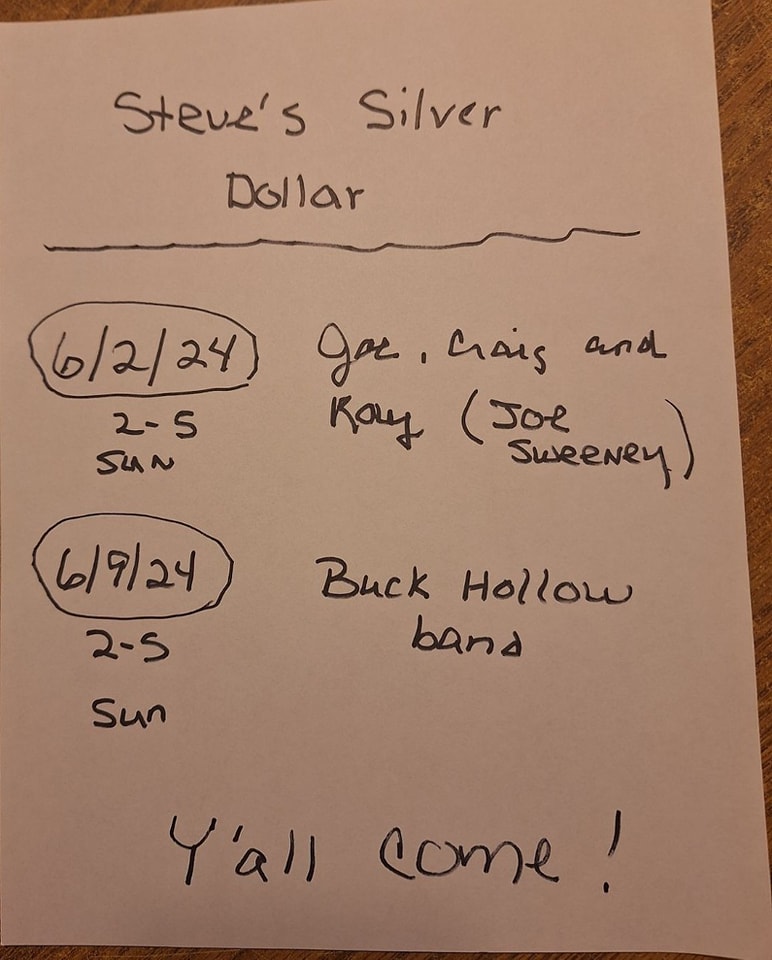 Steve's Silver
Dollar
6/2/24 Joe, Craig and
2-5 Kay (Joe
Sun Sweeney)
6/9/24 Buck Hollow
2-5 band
Sun
Y'all come!